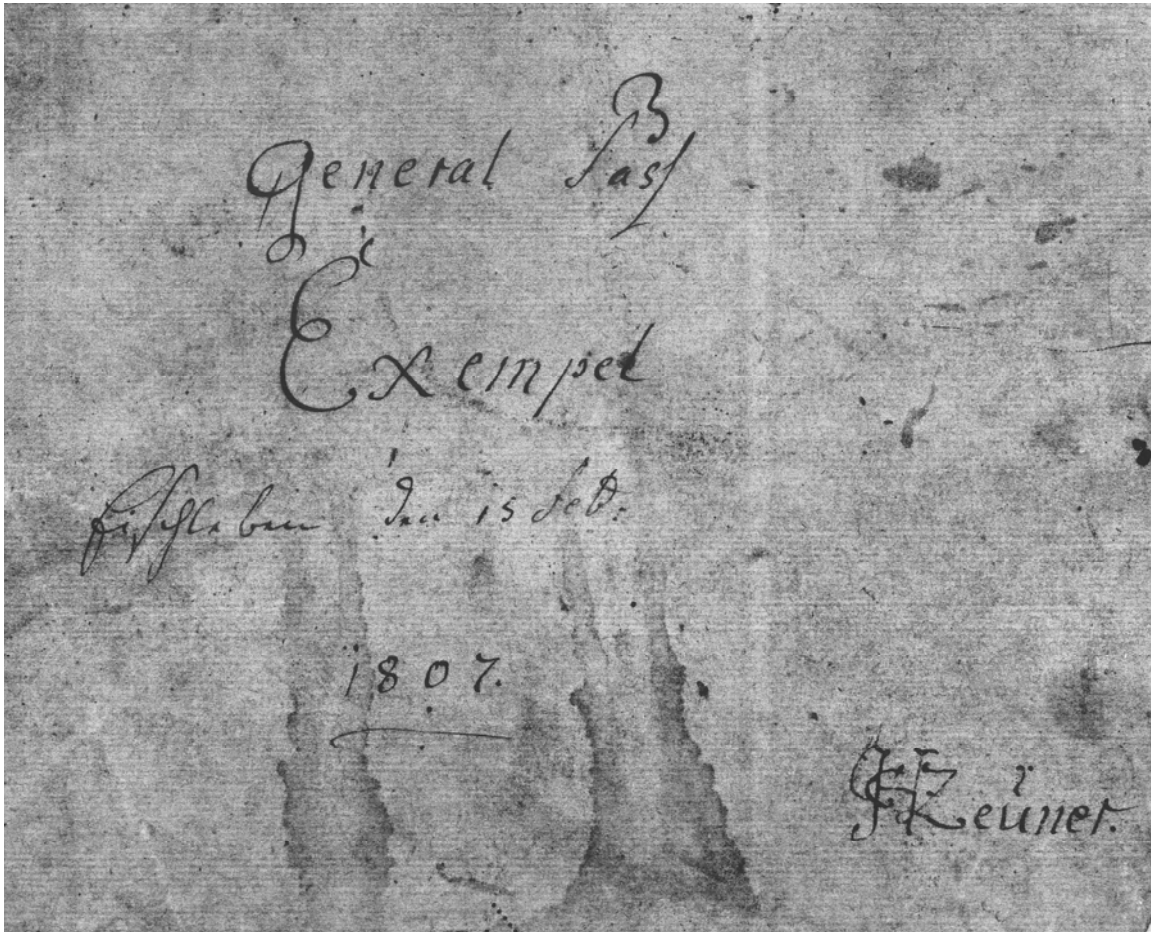 General Bass
Exempel
Eischleben den 15 Feb:
1807.
Zeuner.